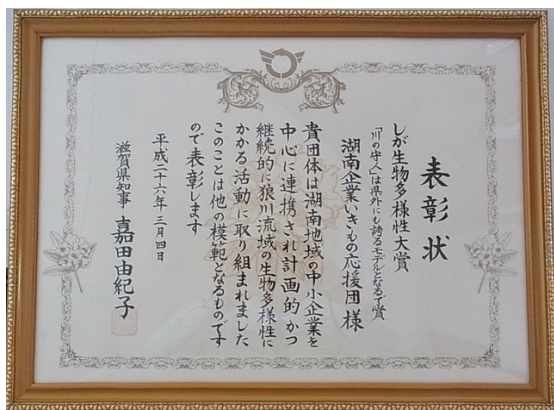 表彰状
しが生物多様性大賞
「川の守人」は県外にも誇るモデルとなるで賞
湖南企業いきもの応援団様
貴団体は湖南地域の中小企業を
中心に連携され計画的かつ
継続的に狼川流域の生物多様性に
かかる活動に取り組まれました
このことは他の模範となるものです
ので表彰します
平成二十六年三月四日
滋賀県知事 嘉田由紀子